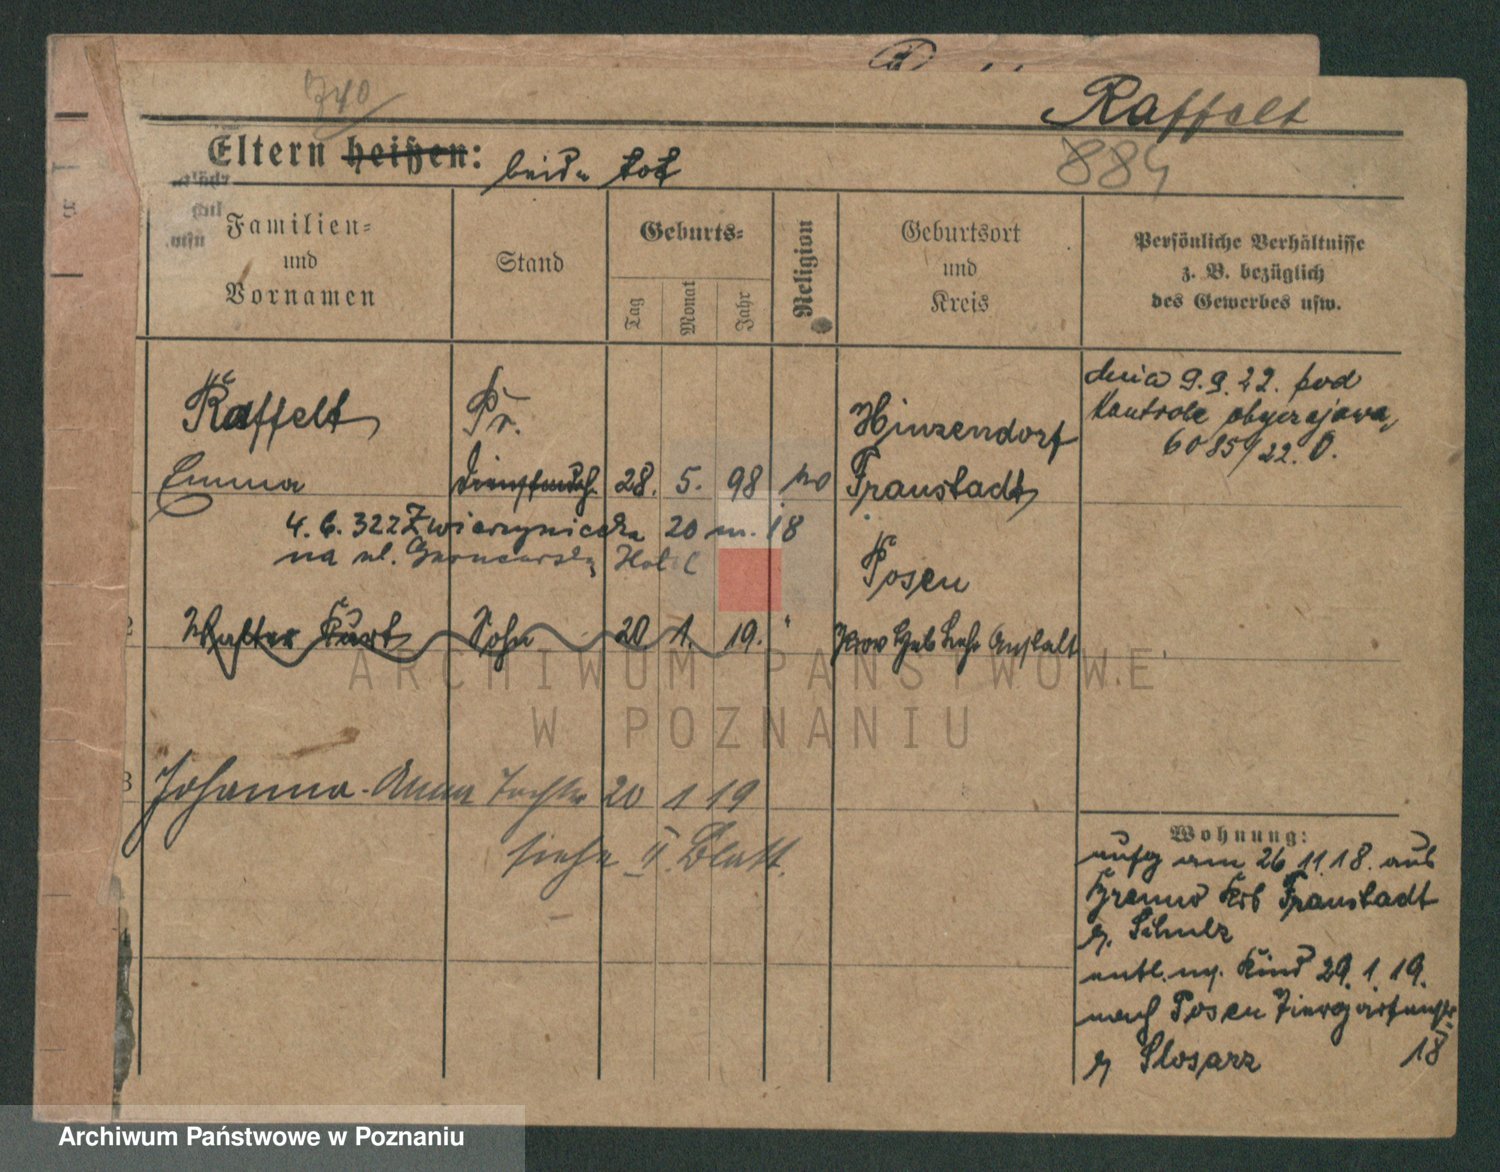 740
Raffelt
884
Eltern heißen: beide tot
Familien= und Vornamen
Stand
Geburts=
Tag
Monat
Jahr
Religion
Geburtsort und Kreis
Persönliche Verhältnisse
z. B. bezüglich
des Gewerbes usw.
Raffelt
Pr.
Hinzendorf
dnia 9.9.22. pod
kontrolę obyczajową
6085/22. O.
Emma Dienstmdch. 28. 5. 98 Fraustadt
4. 6. 322 Zwierzyniecka 20 m. 18
na ul. Garncarską Hotel
Posen
2 Walter Kurt Sohn 20 1. 19. " Prov Heb Lehr Anstalt
3 Johanna-Anna Tochter 20 1 19
siehe II. Blatt.
Wohnung:
aufg am 26 11 18. aus
Fraustadt
b. Schulz
entl. m. Kind 29. 1. 19.
nach Posen Tiergartenstr.
18
b Slosarz
ARCHIWUM PAŃSTWOWE
W POZNANIU
Archiwum Państwowe w Poznaniu